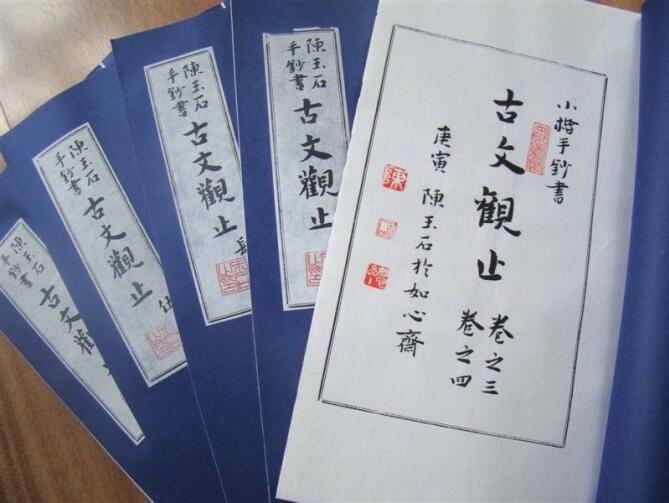 小楷手鈔書
古文觀止
卷之三
卷之四
庚寅 陳玉石於如心齋
陳
陳玉石
手鈔書
古文觀止
陳玉石
手鈔書
古文觀止
陳玉石
手鈔書
古文觀止
陳玉石
手鈔書
古文觀